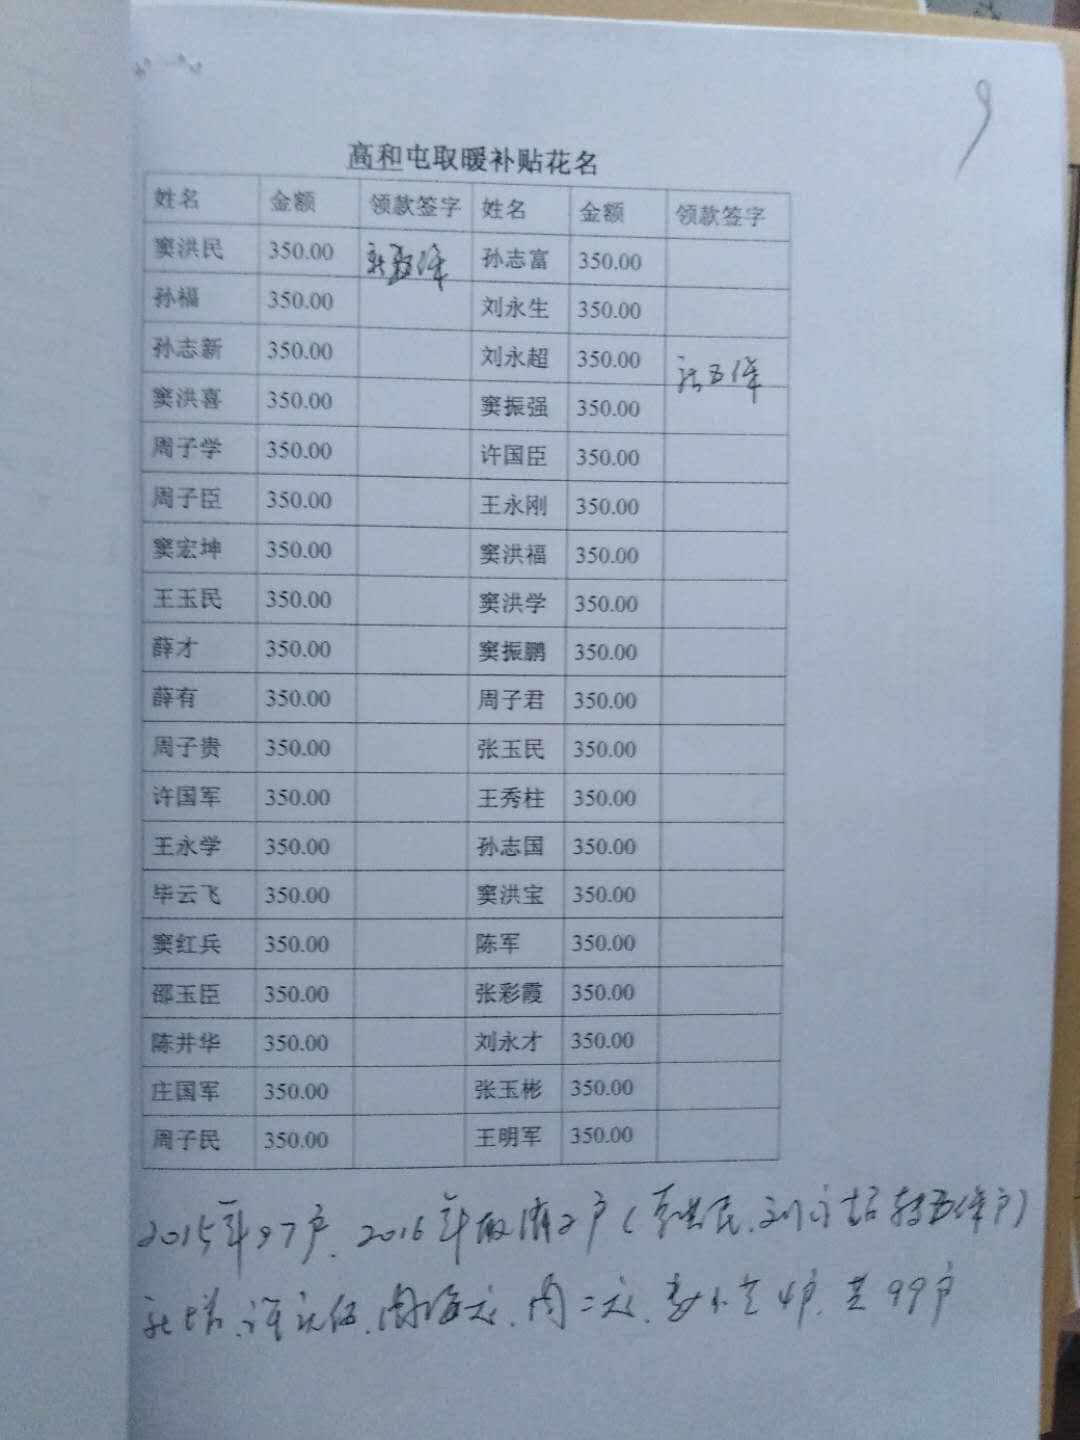 9
高和屯取暖补贴花名
姓名 金额 领款签字 姓名 金额 领款签字
窦洪民 350.00 孙志富 350.00
孙福 350.00 刘永生 350.00
孙志新 350.00 刘永超 350.00 转五保
窦洪喜 350.00 窦振强 350.00
周子学 350.00 许国臣 350.00
周子臣 350.00 王永刚 350.00
窦宏坤 350.00 窦洪福 350.00
王玉民 350.00 窦洪学 350.00
薛才 350.00 窦振鹏 350.00
薛有 350.00 周子君 350.00
周子贵 350.00 张玉民 350.00
许国军 350.00 王秀柱 350.00
王永学 350.00 孙志国 350.00
毕云飞 350.00 窦洪宝 350.00
窦红兵 350.00 陈军 350.00
邵玉臣 350.00 张彩霞 350.00
陈井华 350.00 刘永才 350.00
庄国军 350.00 张玉彬 350.00
周子民 350.00 王明军 350.00
2015年97户、2016年取消2户(窦洪民、刘永超转五保户)
新增、4户、共99户